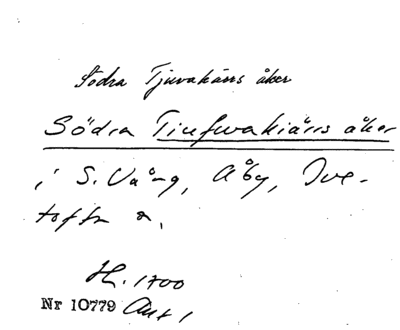 Södra Tjuvakärrs åker
Södra Tiufwakiärrs åker
i S. Vång, Åby, Ive-
tofta s.
H. 1700
Nr 10779 Akt 1